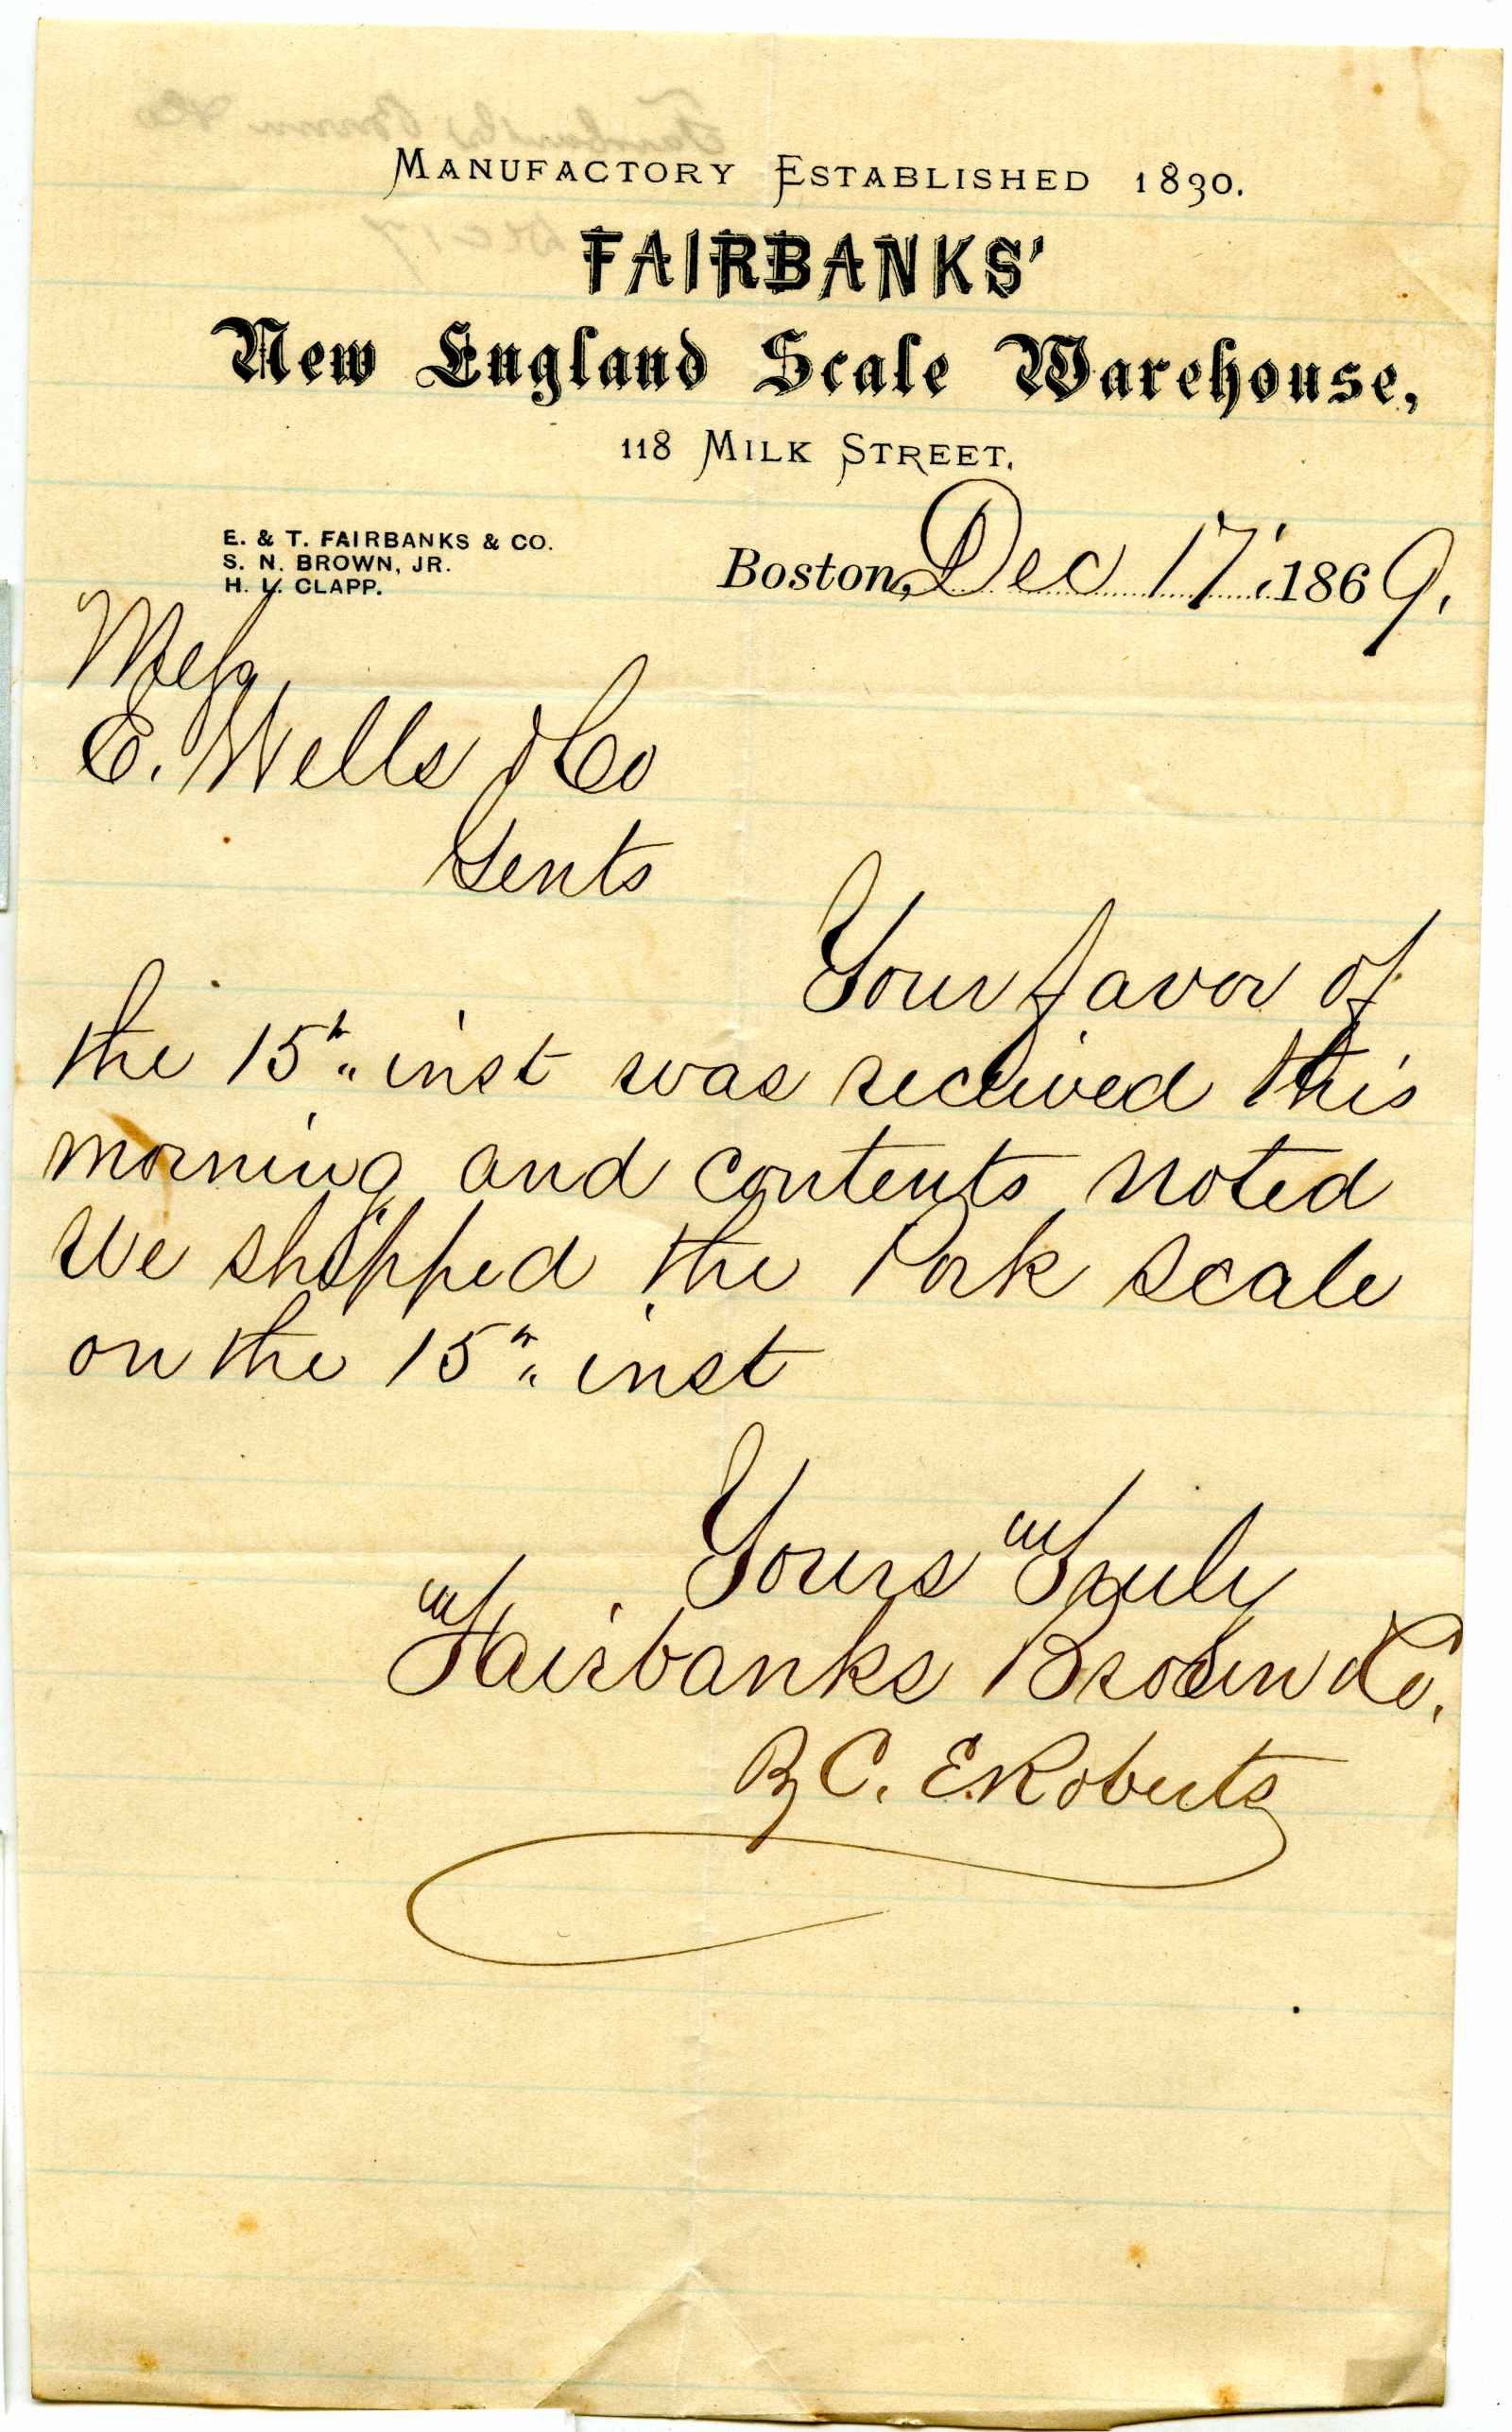 MANUFACTORY ESTABLISHED 1830.
FAIRBANKS'
New England Scale Warehouse,
118 MILK STREET.
E. & T. FAIRBANKS & CO.
S. N. BROWN, JR.
H. L. CLAPP.
Boston, Dec 17, 1869.
Mess
E. Wells & Co
Gents
Your favor of
the 15th inst was received this
morning and contents noted
We shipped the Pork Scale
on the 15th inst
Yours Truly
Fairbanks Brown & Co.
By C. E. Roberts